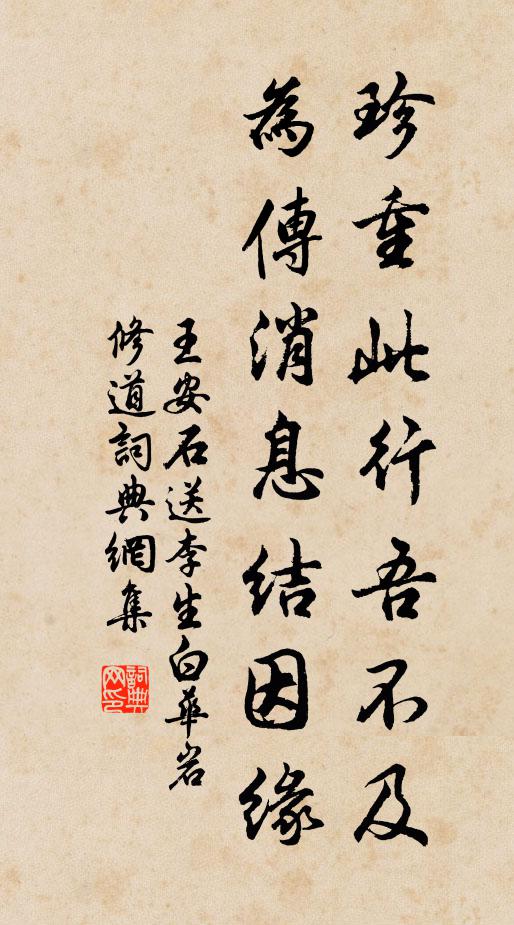 珍重此行吾不及
為傳消息結因緣
王安石送李生白華岩
修道詞典網集
詞典
网印